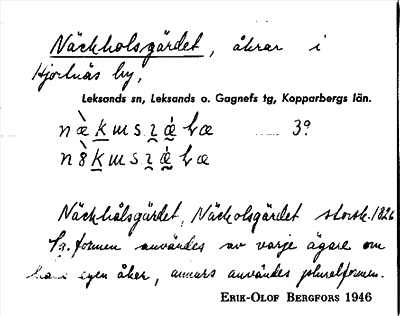 Näckholsgärdet, åkrar i
Hjortnäs by,
Leksands sn, Leksands o. Gagnefs tg, Kopparbergs län.
3?
Näckhålsgärdet, Näckolsgärdet storsk. 1826
Sg. formen användes av varje ägare om
sin egen åker, annars användes pluralformen.
Erik-Olof Bergfors 1946